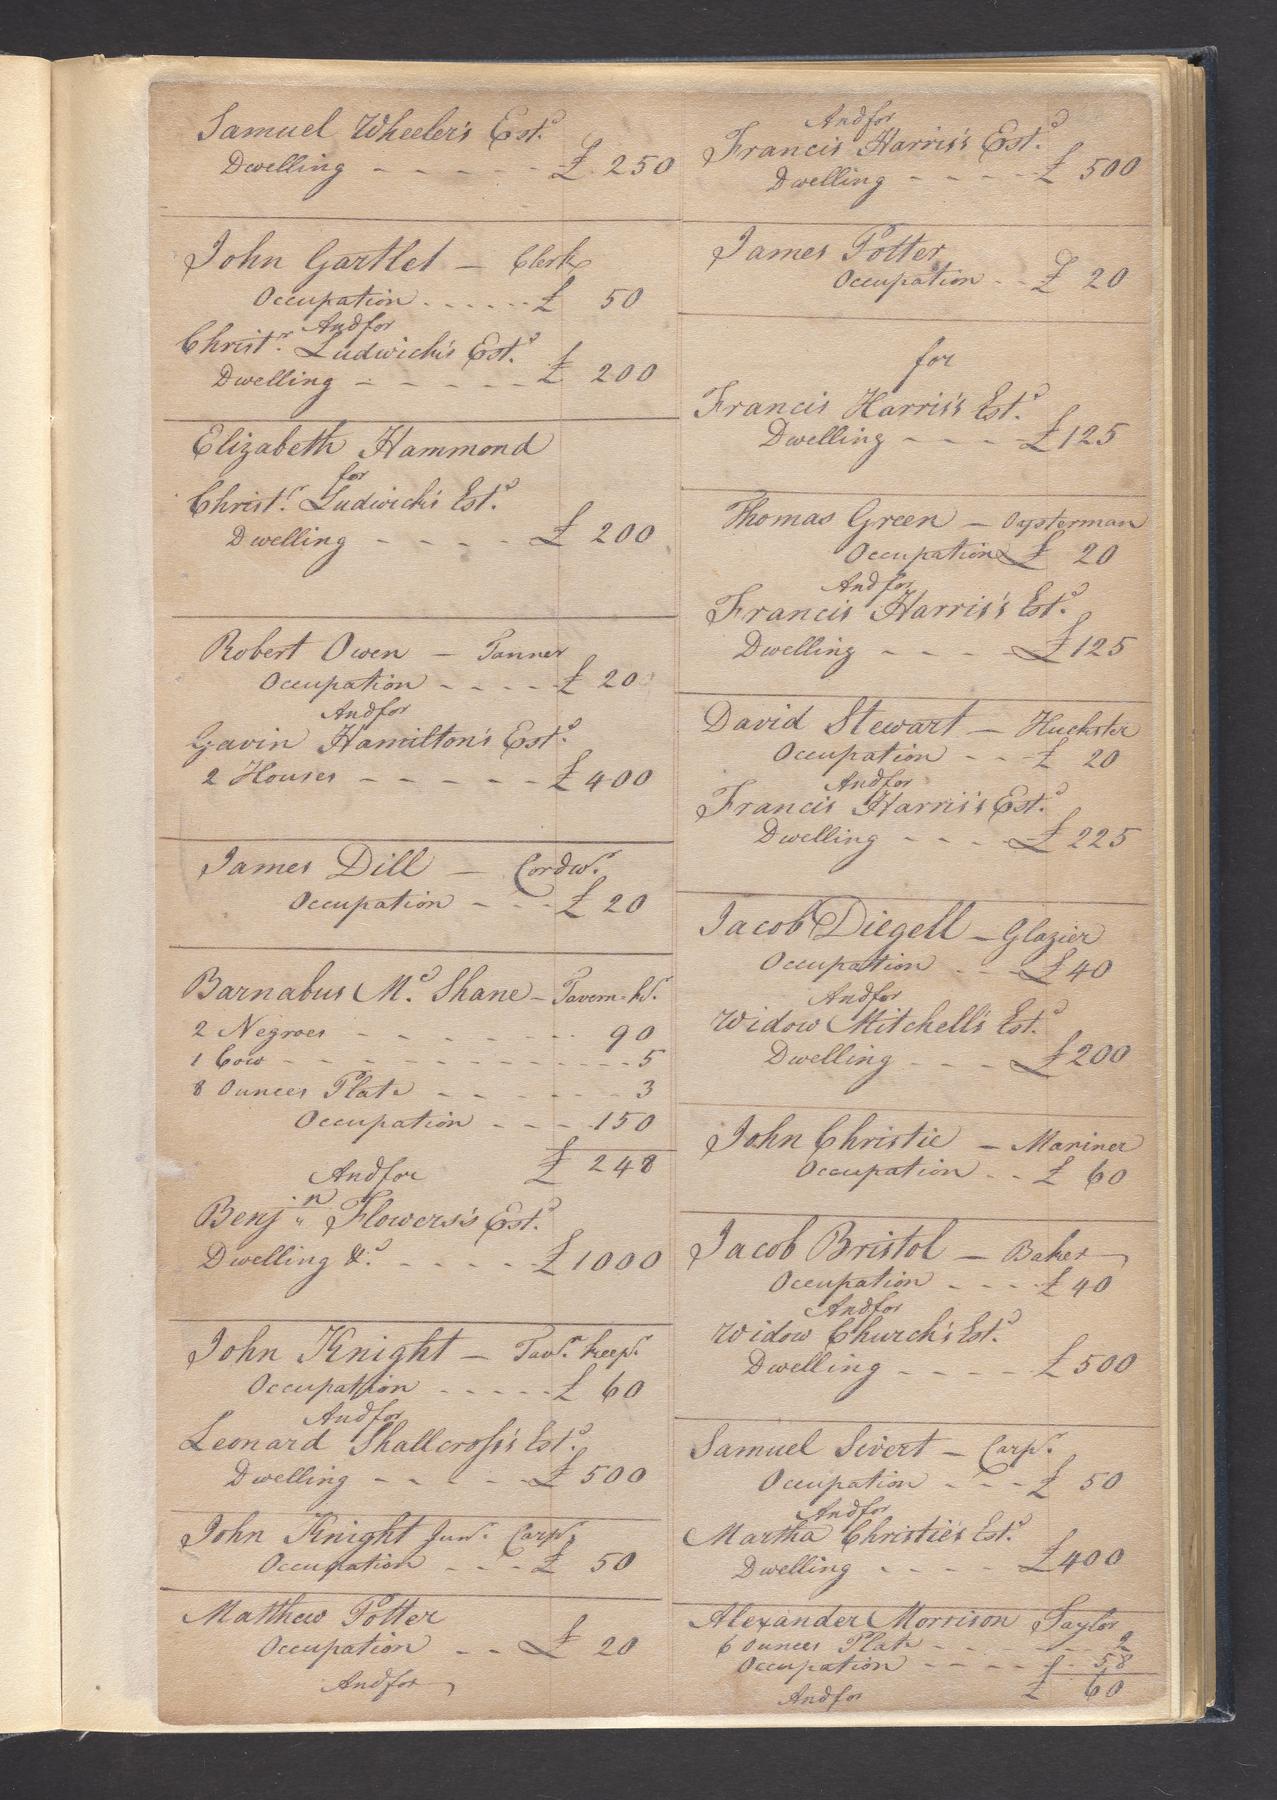 Samuel Wheeler's Estd
Dwelling - - - - - - £ 250
John Gartlet — Clerk
Occupation - - - - - - £ 50
And for
Christr. Ludwick's Estd
Dwelling - - - - - - £ 200
Elizabeth Hammond
for
Christr. Ludwick's Estd
Dwelling - - - - - £ 200
Robert Owen — Tanner
Occupation - - - - £ 20
And for
Gavin Hamilton's Estd
2 Houses - - - - - - £ 400
James Dill — Cordwr.
Occupation - - - £ 20
Barnabus Mc. Shane — Tavern-kr.
2 Negroes - - - - - - - 90
1 Cow - - - - - - - - - 5
8 Ounces Plate - - - - - - 3
Occupation - - - - 150
£ 248
And for
Benjn Flowers's Estd
Dwelling &c. - - - - - £ 1000
John Knight — Tavn. keepr.
Occupation - - - - - £ 60
And for
Leonard Shallcross's Estd
Dwelling - - - - - £ 500
John Knight Junr. Carpr.
Occupation - - - £ 50
Matthew Potter
Occupation - - £ 20
And for
And for
Francis Harris's Estd
Dwelling - - - - £ 500
James Potter
Occupation - - £ 20
for
Francis Harris's Estd
Dwelling - - - - £ 125
Thomas Green — Oysterman
Occupation £ 20
And for
Francis Harris's Estd
Dwelling - - - - £ 125
David Stewart — Huckster
Occupation - - £ 20
And for
Francis Harris's Estd
Dwelling - - - - £ 225
Jacob Diegell — Glazier
Occupation - - - £ 40
And for
Widow Mitchell's Estd
Dwelling - - - £ 200
John Christie — Mariner
Occupation - - £ 60
Jacob Bristol — Baker
Occupation - - - £ 40
And for
Widow Church's Estd
Dwelling - - - - £ 500
Samuel Sivert — Carpr.
Occupation - - - £ 50
And for
Martha Christie's Estd
Dwelling - - - - £ 400
Alexander Morrison Taylor
6 Ounces Plate - - - - - 2
Occupation - - - - - 58
£ 60
And for